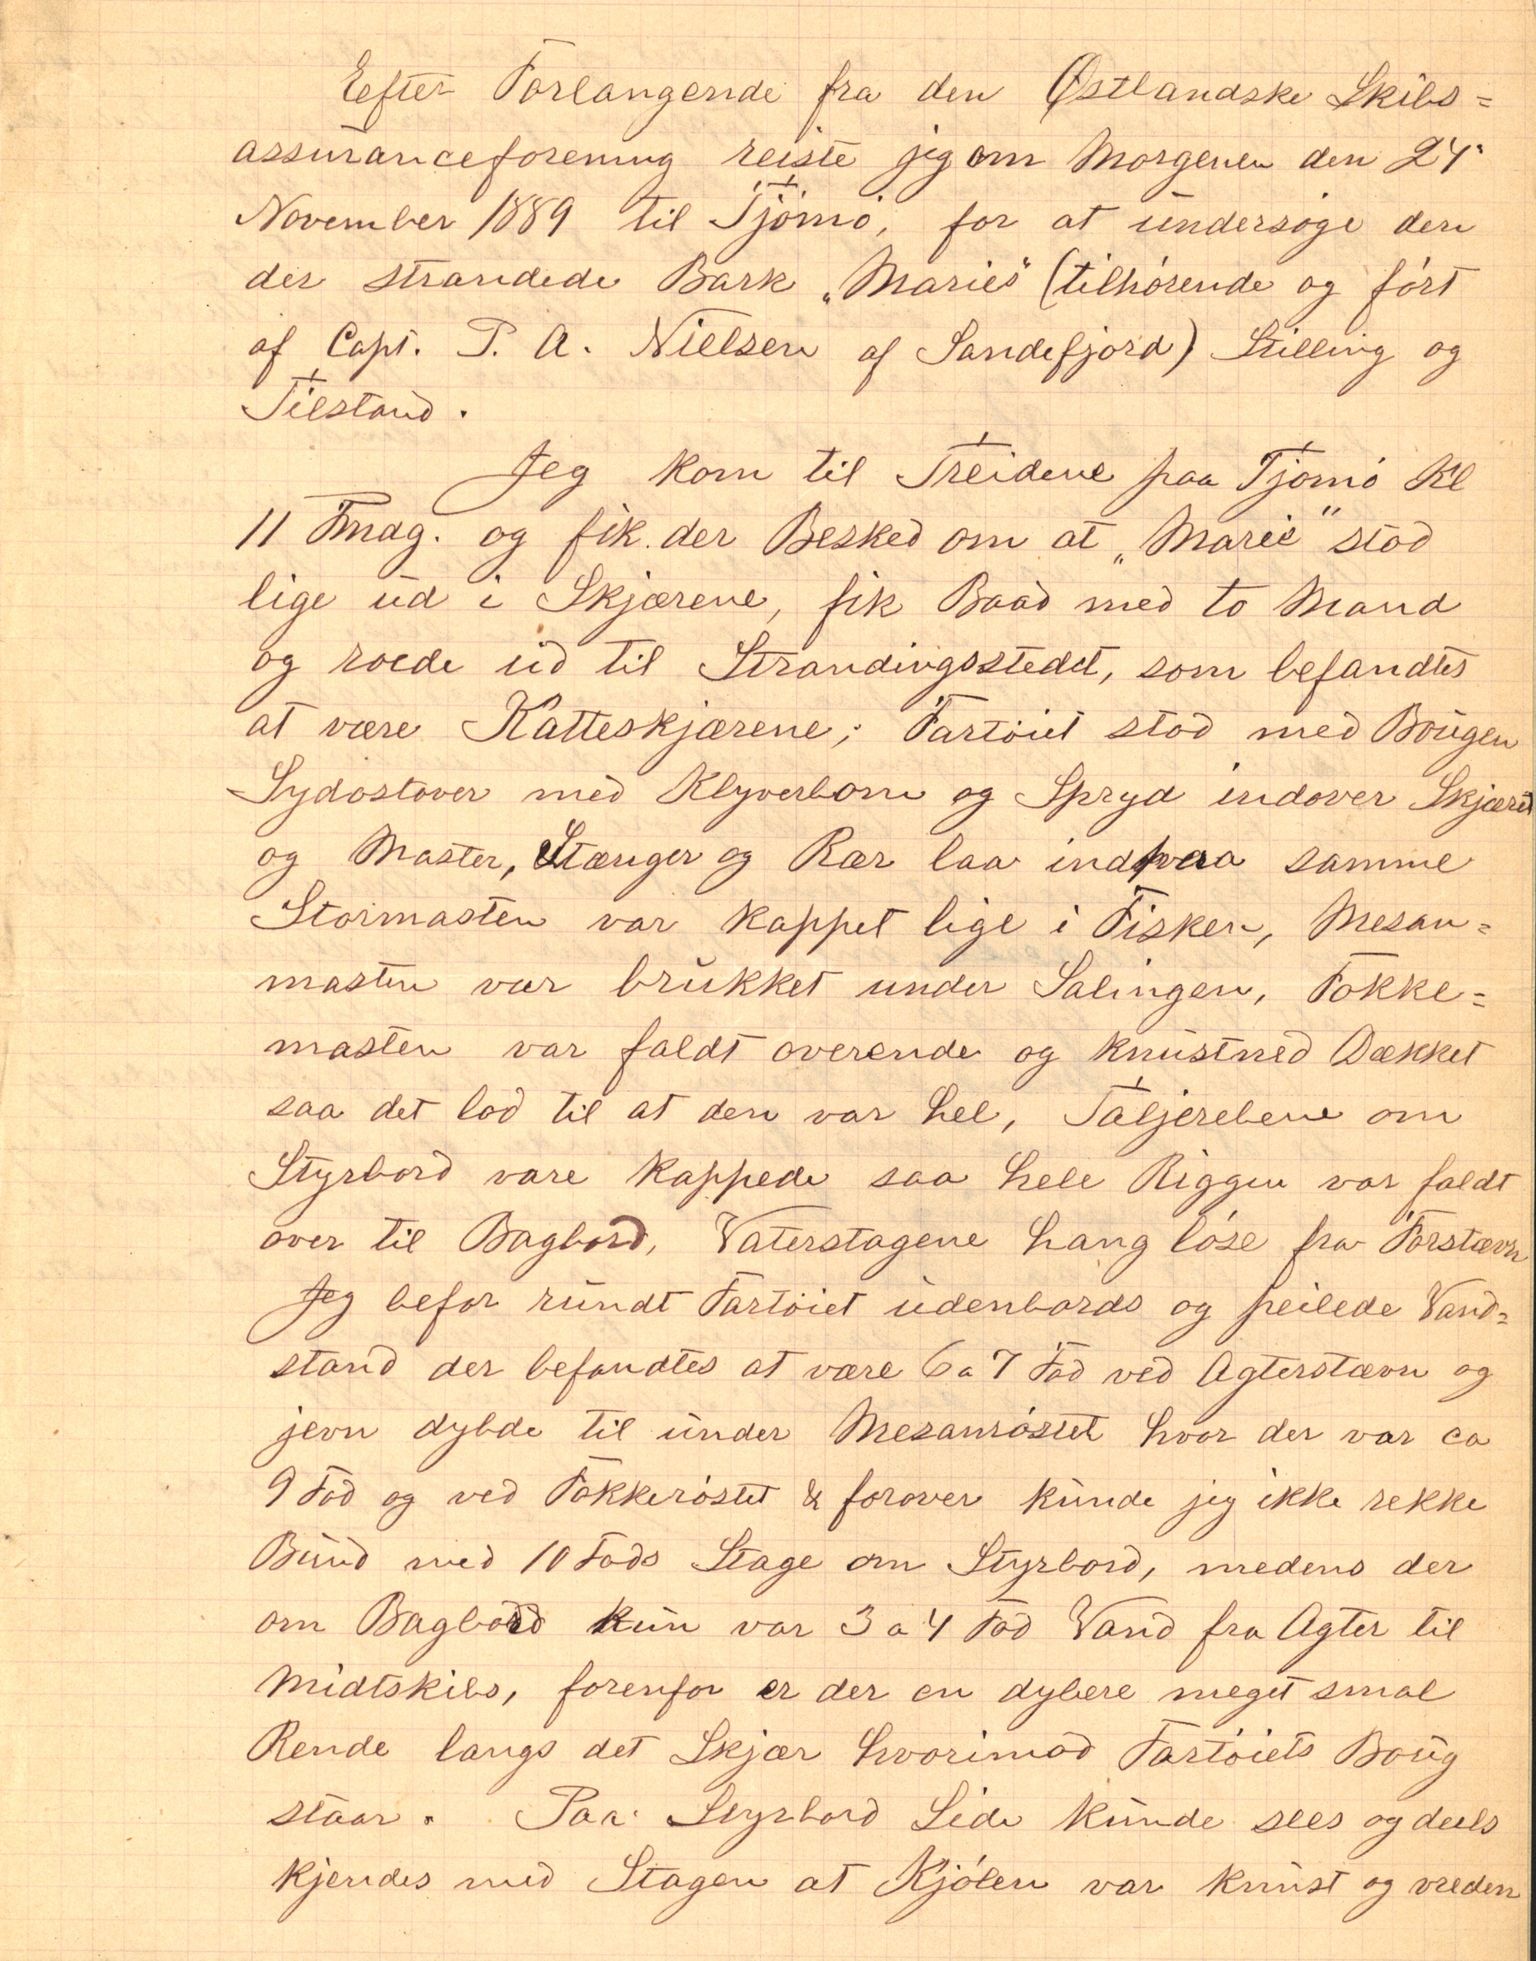 Eefter Forlangende fra den Østlandske Skibs=
assuranceforening reiste jeg om Morgenen den 24'
November 1889 til Tjømø, for at undersøge den
der strandede Bark „Marie“ (tilhørende og ført
af Capt. P. A. Nielsen af Sandefjord) Stilling og
Tilstand.
Jeg kom til Treidene paa Tjømø Kl
11 Fmdg. og fik der Besked om at „Marie“ stod
lige ud i Skjærene, fik Baad med to Mand
og roede ud til Strandingsstedet, som befandtes
at være Katteskjærene; Fartøiet stod med Bougen
Sydostover med Klyverbom og Spryd indover Skjæret
og Master, Stænger og Rær laa indpaa samme
Stormasten var kappet lige i Fisken, Mesan=
masten var brukket under Salingen, Fokke=
masten var faldt overende og knust ned Dækket
saa det lod til at den var hel, Taljerebene om
Styrbord vare kappede saa hele Riggen var faldt
over til Bagbord, Vaterstagene hang løse fra Forstævn
Jeg befor rundt Fartøiet udenbords og peilede Vand=
stand der befandtes at være 6 a 7 Fod ved Agterstævn og
jevn dybde til under Mesanrøstet hvor der var ca
9 Fod og ved Fokkerøstet & forover kunde jeg ikke rekke
Bund med 10 Fods Stage om Styrbord, medens der
om Bagbord kun var 3 a 4 Fod Vand fra Agter til
Midtskibs, forenfor er der en dybere meget smal
Rende langs det Skjær hvorimod Fartøiets Boug
staar. Paa Styrbord Side kunde sees og deels
kjendes med Stagen at Kjølen var knust og vreden